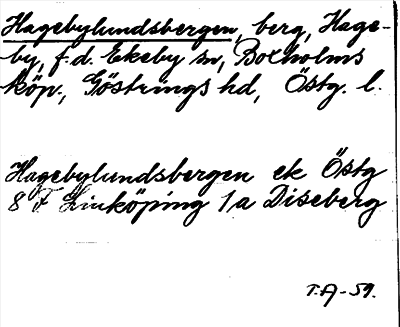 Hagebylundsbergen, berg, Hage-
by, f.d. Ekeby sn, Boxholms
köp., Göstrings hd, Östg. l.
Hagebylundsbergen ek Östg
8 F Linköping 1a Diseberg
T.A-59.